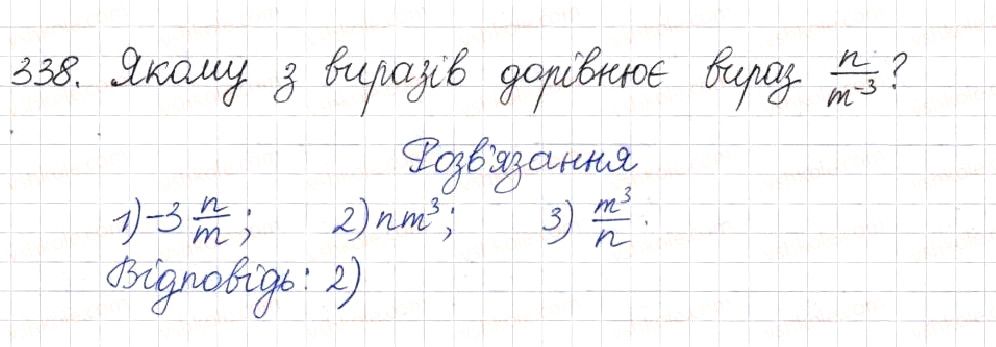 338. Якому з виразів дорівнює вираз n/m⁻³?
Розв'язання
1) -3 n/m; 2) nm³; 3) m³/n.
Відповідь: 2)